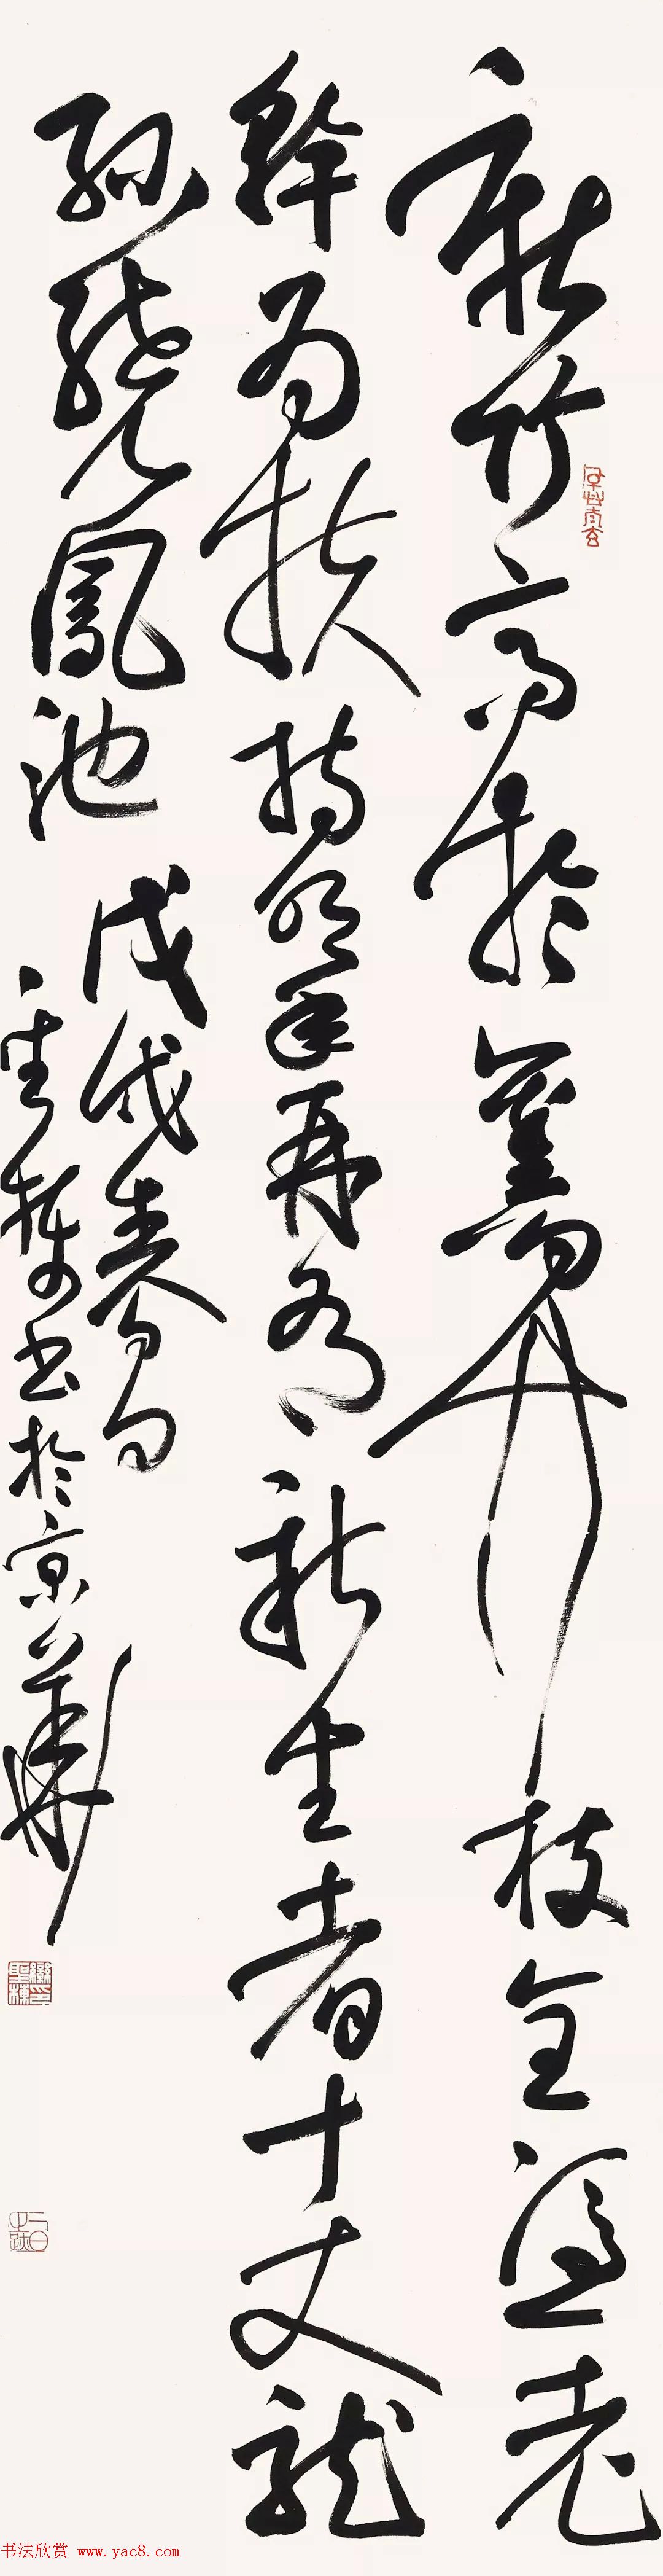 新竹高於舊竹枝全憑老
幹為扶持明年再有新生者十丈龍
孫繞鳳池
戊戌春日
聖棟書於京華
書法欣赏 www.yac8.com